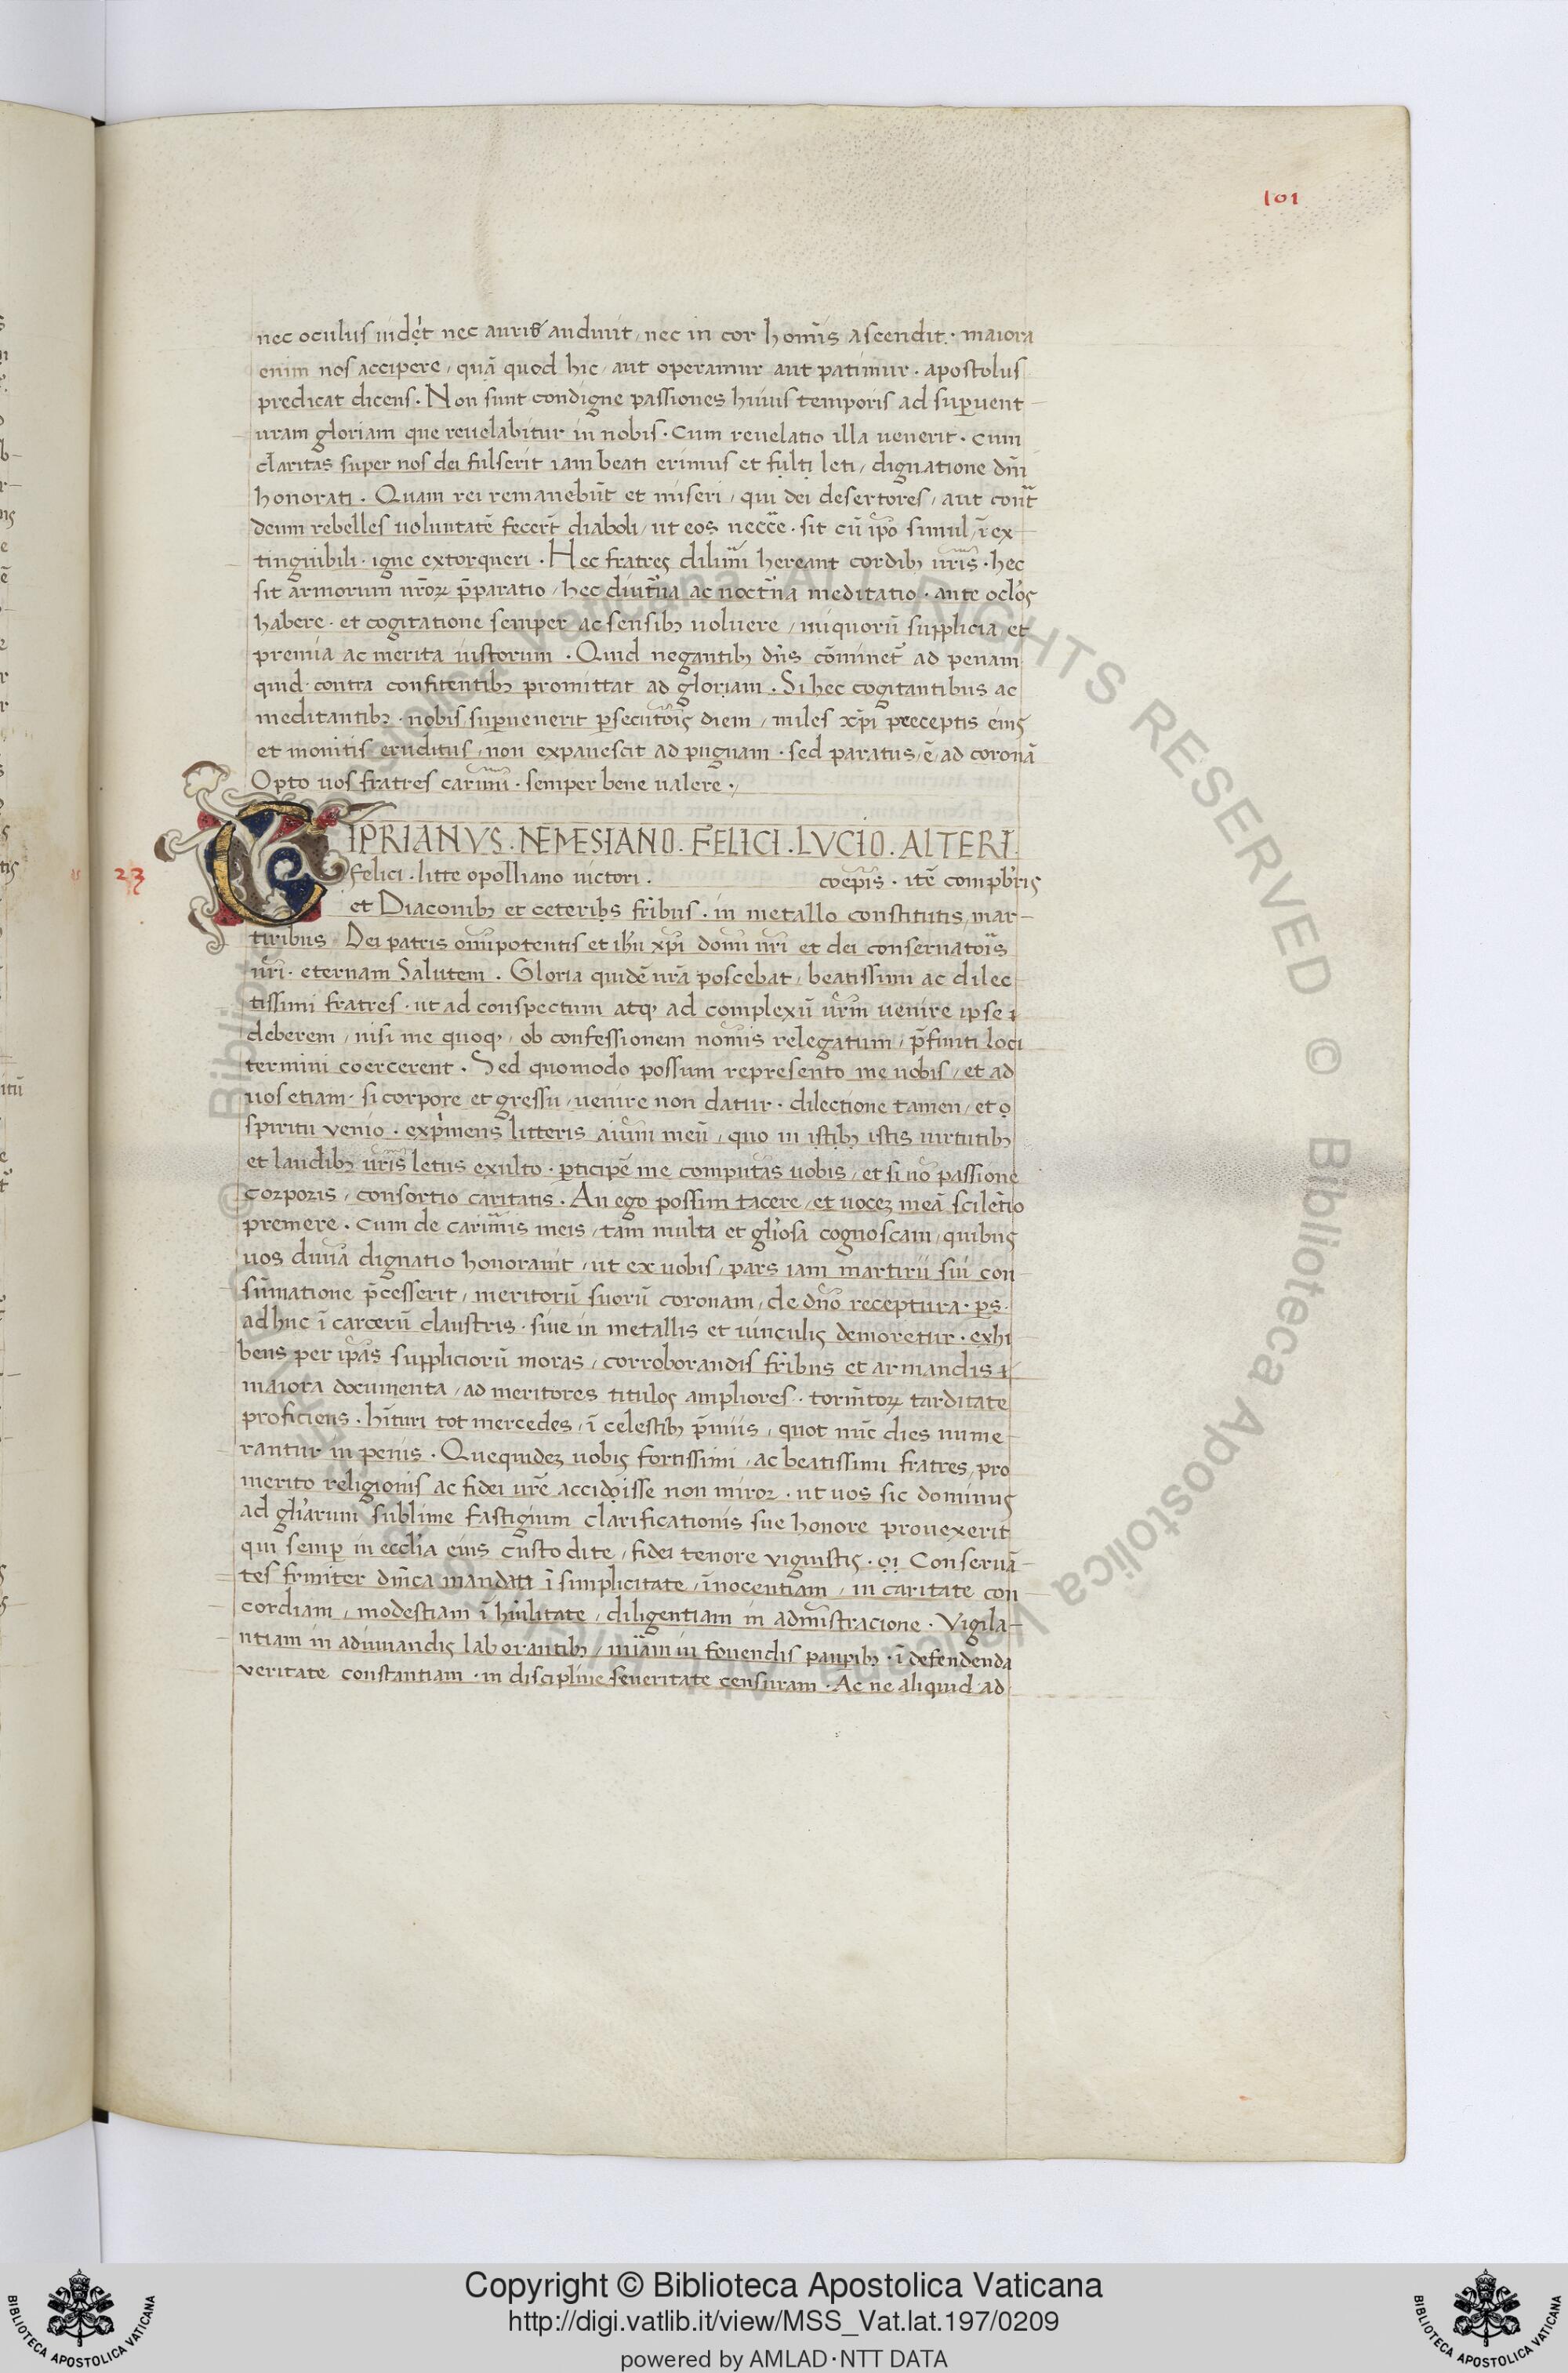 101
nec oculus uidẹt nec auris audiuit, nec in cor hoīs ascendit · maiora
enim nos accipere, quā quod hic, aut operamur aut patimur · apostolus
predicat dicens · Non sunt condigne passiones huius temporis ad suꝑuent
uram gloriam que reuelabitur in nobis · Cum reuelatio illa uenerit · cum
claritas super nos dei fulserit iam beati erimus et leti, dignatione dn̄i
honorati · Quam rei remanebūt et miseri, qui dei desertores, aut cont̄
deum rebelles uoluntatē fecer̄t diaboli, ut eos necc̄e · sit cū ip̄o simul, ī ex
tinguibili · igne extorqueri · Hec fratres dilim̄i hereant cordibꝫ ur̄is · hec
sit armorum nr̄oꝝ p̄paratio, hec diut̄na ac noct̄na meditatio · ante ocl̓os
habere · et cogitatione semper ac sensibꝫ uoluere, iniquorū supplicia et
premia ac merita iustorum · Quid negantibꝫ dn̄s cōminet̄ ad penam
quid · contra confitentibꝫ promittat ad gloriam · Si hec cogitantibus ac
meditantibꝫ · nobis suꝑuenerit ꝑsecut̄ois diem, miles xp̄i preceptis eius
et monitis eruditus, non expauescit ad pugnam · sed paratus, ē, ad coronā
Opto uos fratres carim̄i · semper bene ualere ·,
CIPRIANVS · NEMESIANO · FELICI · LVCIO · ALTERI
23 felici · litte opolliano uictori · coep̄is · itē compb̄ris
et Diaconibꝫ et ceteribs fr̄ibus · in metallo constitutis, mar-
tiribus Dei patris om̄ipotentis et ih̄u xp̄i domī nr̄i et dei conseruatoīs
nr̄i · eternam Salutem · Gloria quidē ur̄a poscebat, beatissimi ac dilec
tissimi fratres · ut ad conspectum atqꝫ ad complexū ur̄m uenire ipse
deberem, nisi me quoqꝫ, ob confessionem nomīs relegatum, p̄finiti loci
termini coercerent · Sed quomodo possum represento me uobis, et ad
uos etiam · si corpore et gressu, uenire non datur · dilectione tamen, et
spiritu venio · exp̄mens litteris aium̄ meū, quo in istibꝫ istis uirtutibꝫ
et laudibꝫ ur̄is letus exulto · ꝑticipē me computās uobis, et si nō passione
corporis, consortio caritatis · An ego possim tacere, et uoceꝫ meā scilētio
premere · Cum de carim̄is meis, tam multa et gl̓iosa cognoscam, quibus
uos diuīa dignatio honorauit, ut ex uobis, pars iam martirii sui con
sūmatione p̄cesserit, meritorū suorū coronam, de dn̄o receptura · ꝑs ·
ad huc ī carcerū claustris · siue in metallis et uinculis demoretur · exhi
bens per ip̄as suppliciorū moras, corroborandis fr̄ibus et armandis
maiora documenta, ad meritores titulos ampliores · torm̄toꝝ tarditate
proficiens · hīturi tot mercedes, ī celestibꝫ p̄miis, quot nūc dies nume
rantur in penis · Quequideꝫ uobis fortissimi, ac beatissimi fratres, pro
merito religionis ac fidei ur̄e accidisse non miror · ut uos sic dominus
ad gl̓iarum sublime fastigium clarificationis sue honore prouexerit
qui semꝑ in eccl̓ia eius custodite, fidei tenore viguistis · Conseruā-
tes frmiter dn̄ica mandata ī simplicitate, īnocentiam, in caritate con
cordiam, modestiam ī hūilitate, diligentiam in admīstracione · Vigila-
ntiam in adiuuandis laborantibꝫ, mīam in fouendis pauꝑibꝫ · ī defendenda
veritate constantiam · in discipline seueritate censuram · Ac ne aliquid ad
© Biblioteca Apostolica Vaticana ALL RIGHTS RESERVED
Copyright © Biblioteca Apostolica Vaticana
http://digi.vatlib.it/view/MSS_Vat.lat.197/0209
powered by AMLAD·NTT DATA
BIBLIOTECA APOSTOLICA VATICANA
BIBLIOTECA APOSTOLICA VATICANA